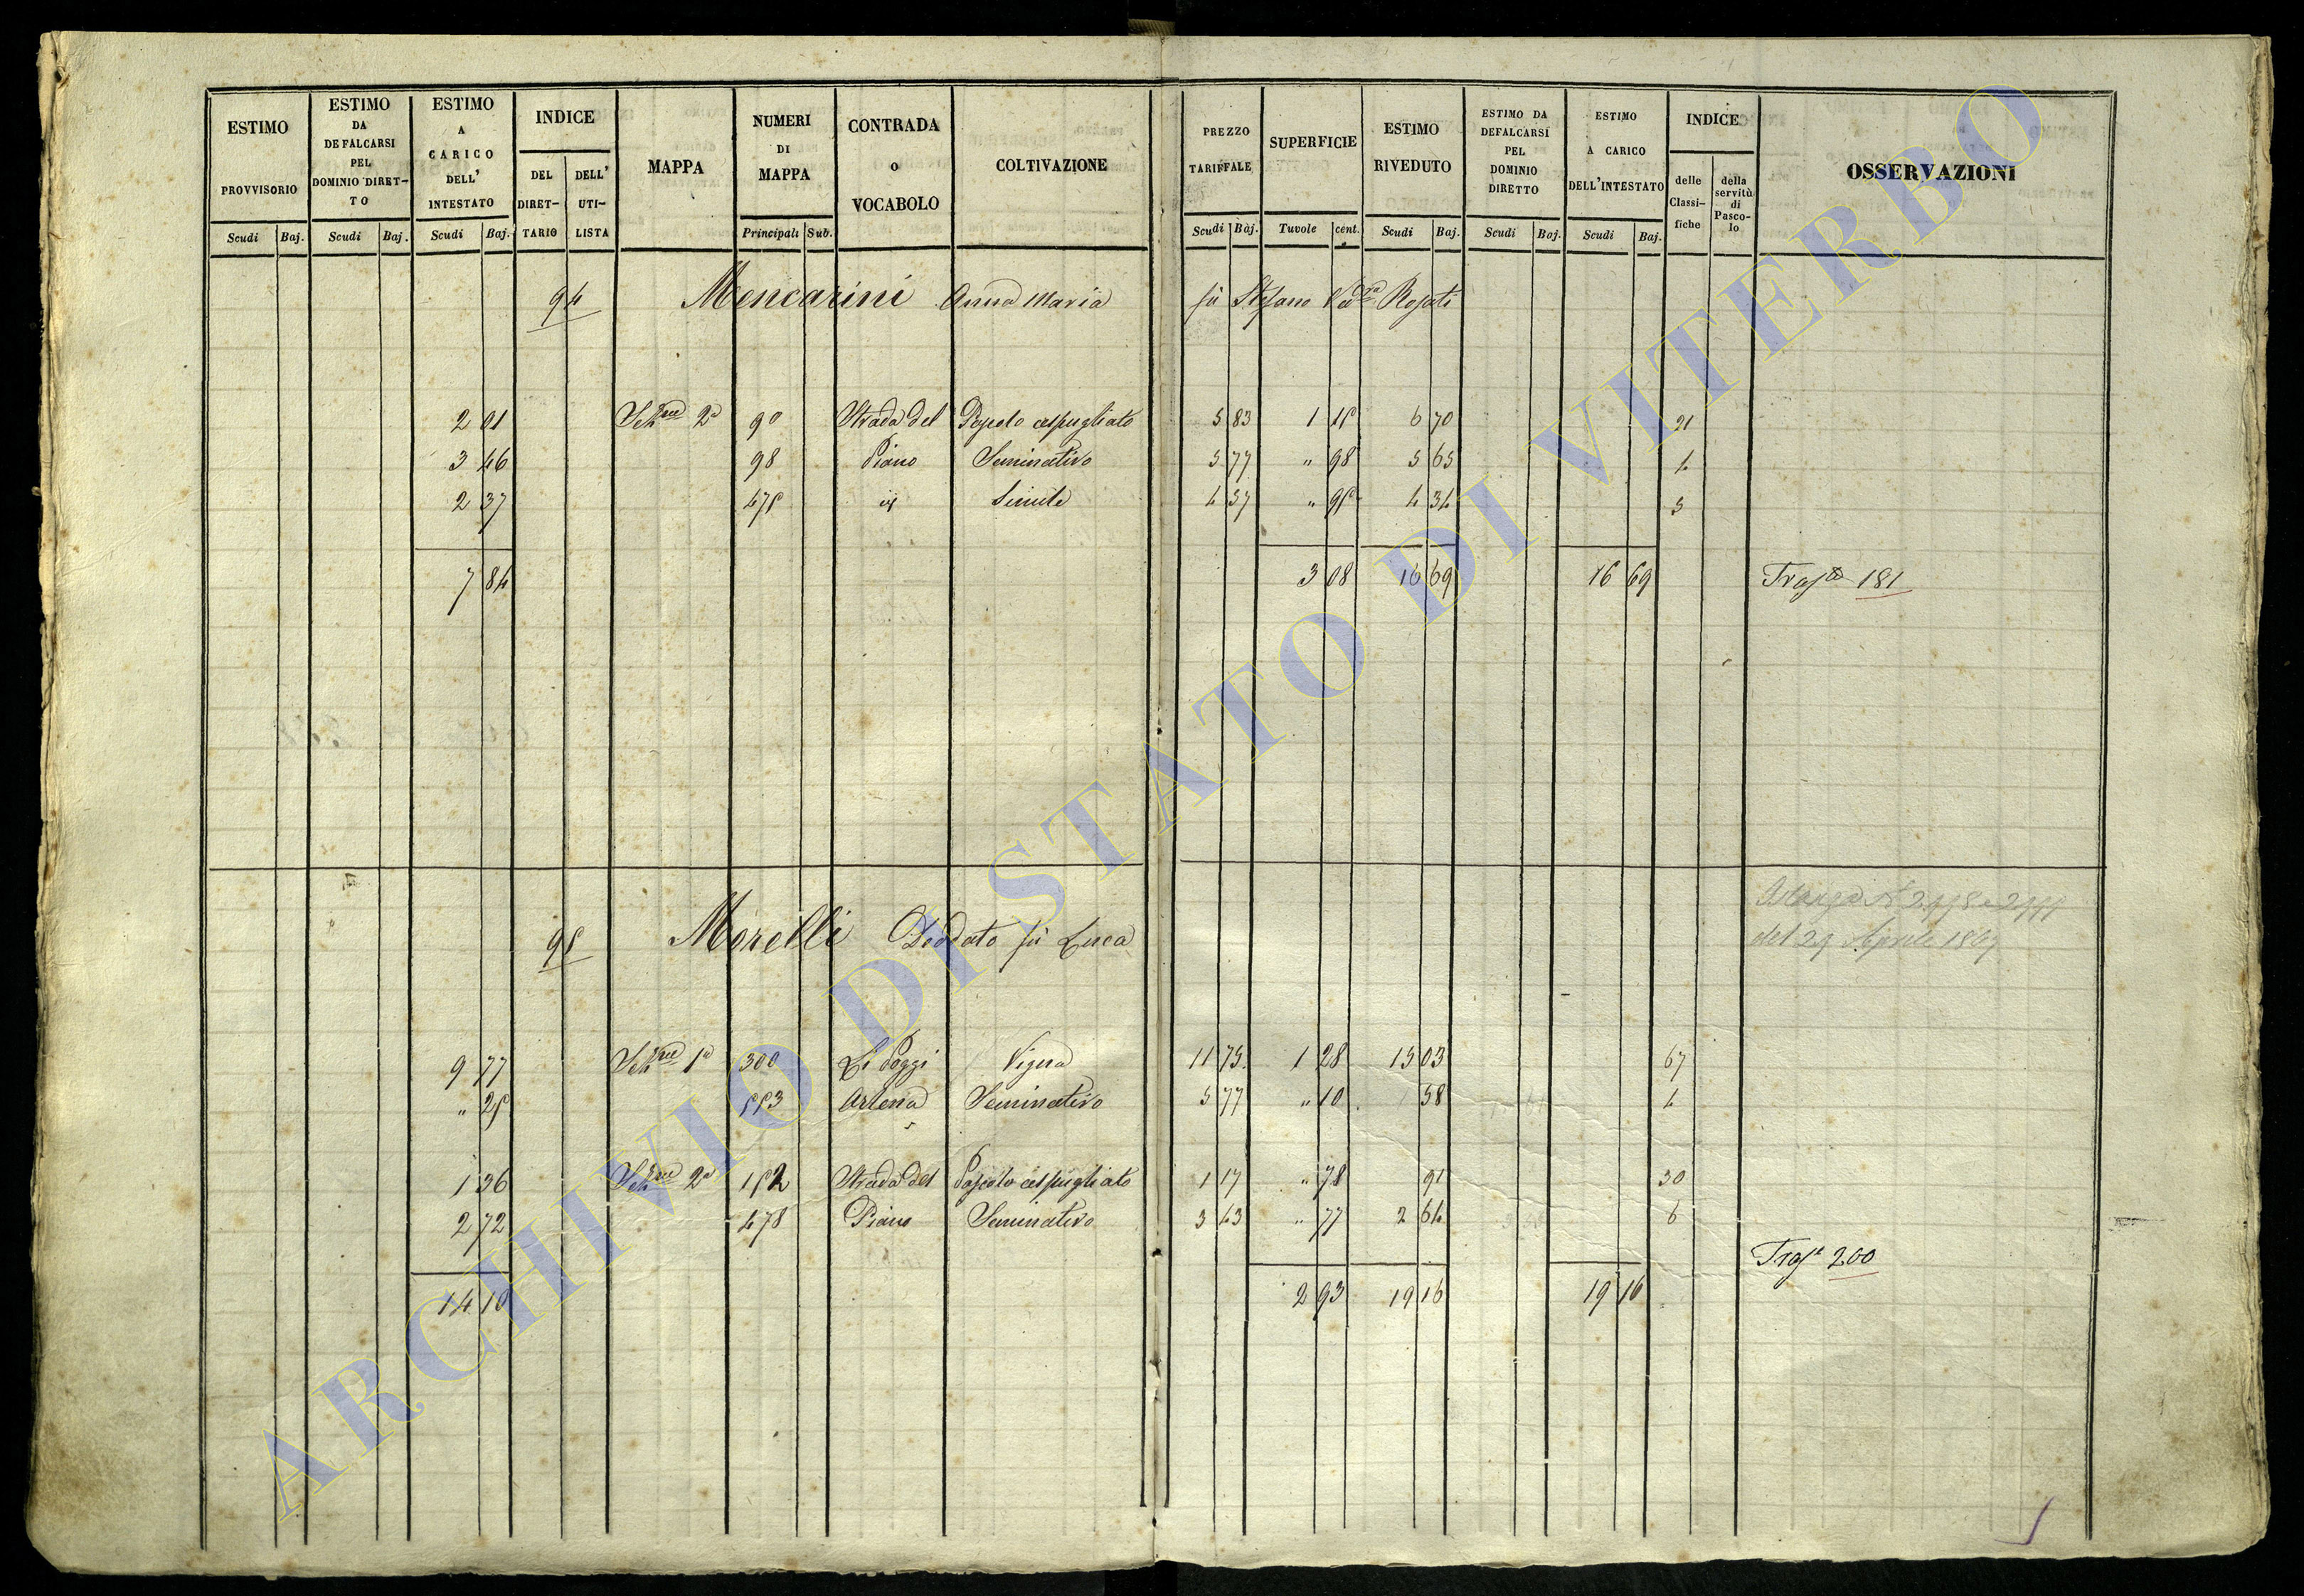 ESTIMO PROVVISORIO
Scudi Baj.
ESTIMO DA DEFALCARSI PEL DOMINIO DIRET-TO
Scudi Baj.
ESTIMO A CARICO DELL' INTESTATO
Scudi Baj.
INDICE
DEL DIRET-TARIO
DELL' UTI-LISTA
MAPPA
NUMERI DI MAPPA
Principali Sub.
CONTRADA o VOCABOLO
COLTIVAZIONE
PREZZO TARIFFALE
Scudi Baj.
SUPERFICIE
Tavole cent.
ESTIMO RIVEDUTO
Scudi Baj.
ESTIMO DA DEFALCARSI PEL DOMINIO DIRETTO
Scudi Baj.
ESTIMO A CARICO DELL'INTESTATO
Scudi Baj.
INDICE
delle Classi-fiche
della servitù di Pasco-lo
OSSERVAZIONI
94 Mencarini Anna Maria fù Stefano Vedva Rosati
2 91 Sezne 2a 90 Strada del Pascolo cespugliato 5 83 1 15 6 70 21
3 46 98 Piano Seminativo 5 77 " 98 5 65 4
2 37 475 id Simile 4 57 " 95 4 34 5
7 84 3 08 16 69 16 69 Trasto 181
95 Morelli Deodato fù Luca
del 29 Aprile 1869
9 77 Sezne 1a 300 Li Poggi Vigna 11 75 1 28 15 03 67
" 25 553 Arlena Seminativo 5 77 " 10 58 4
1 36 Sezne 2a 152 Strada del Pascolo cespugliato 1 17 " 78 91 30
2 72 478 Piano Seminativo 3 43 " 77 2 64 6
Trast 200
14 10 2 93 19 16 19 16
ARCHIVIO DI STATO DI VITERBO